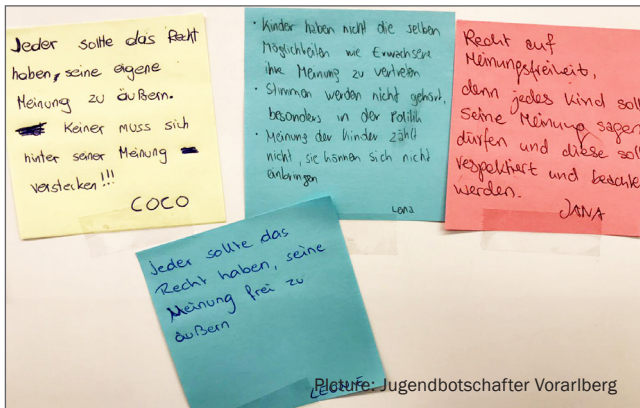 Jeder sollte das Recht
haben, seine eigene
Meinung zu äußern.
Keiner muss sich
hinter seiner Meinung
verstecken!!!
COCO
• Kinder haben nicht die selben
Möglichkeiten wie Erwachsene
ihre Meinung zu vertreten
• Stimmen werden nicht gehört,
besonders in der Politik
• Meinung der Kinder zählt
nicht, sie können sich nicht
einbringen
Lena
Recht auf
Meinungsfreiheit,
denn jedes Kind soll
seine Meinung sagen
dürfen und diese soll
respektiert und
werden.
JANA
Jeder sollte das
Recht haben, seine
Meinung frei zu
äußern
Picture: Jugendbotschafter Vorarlberg